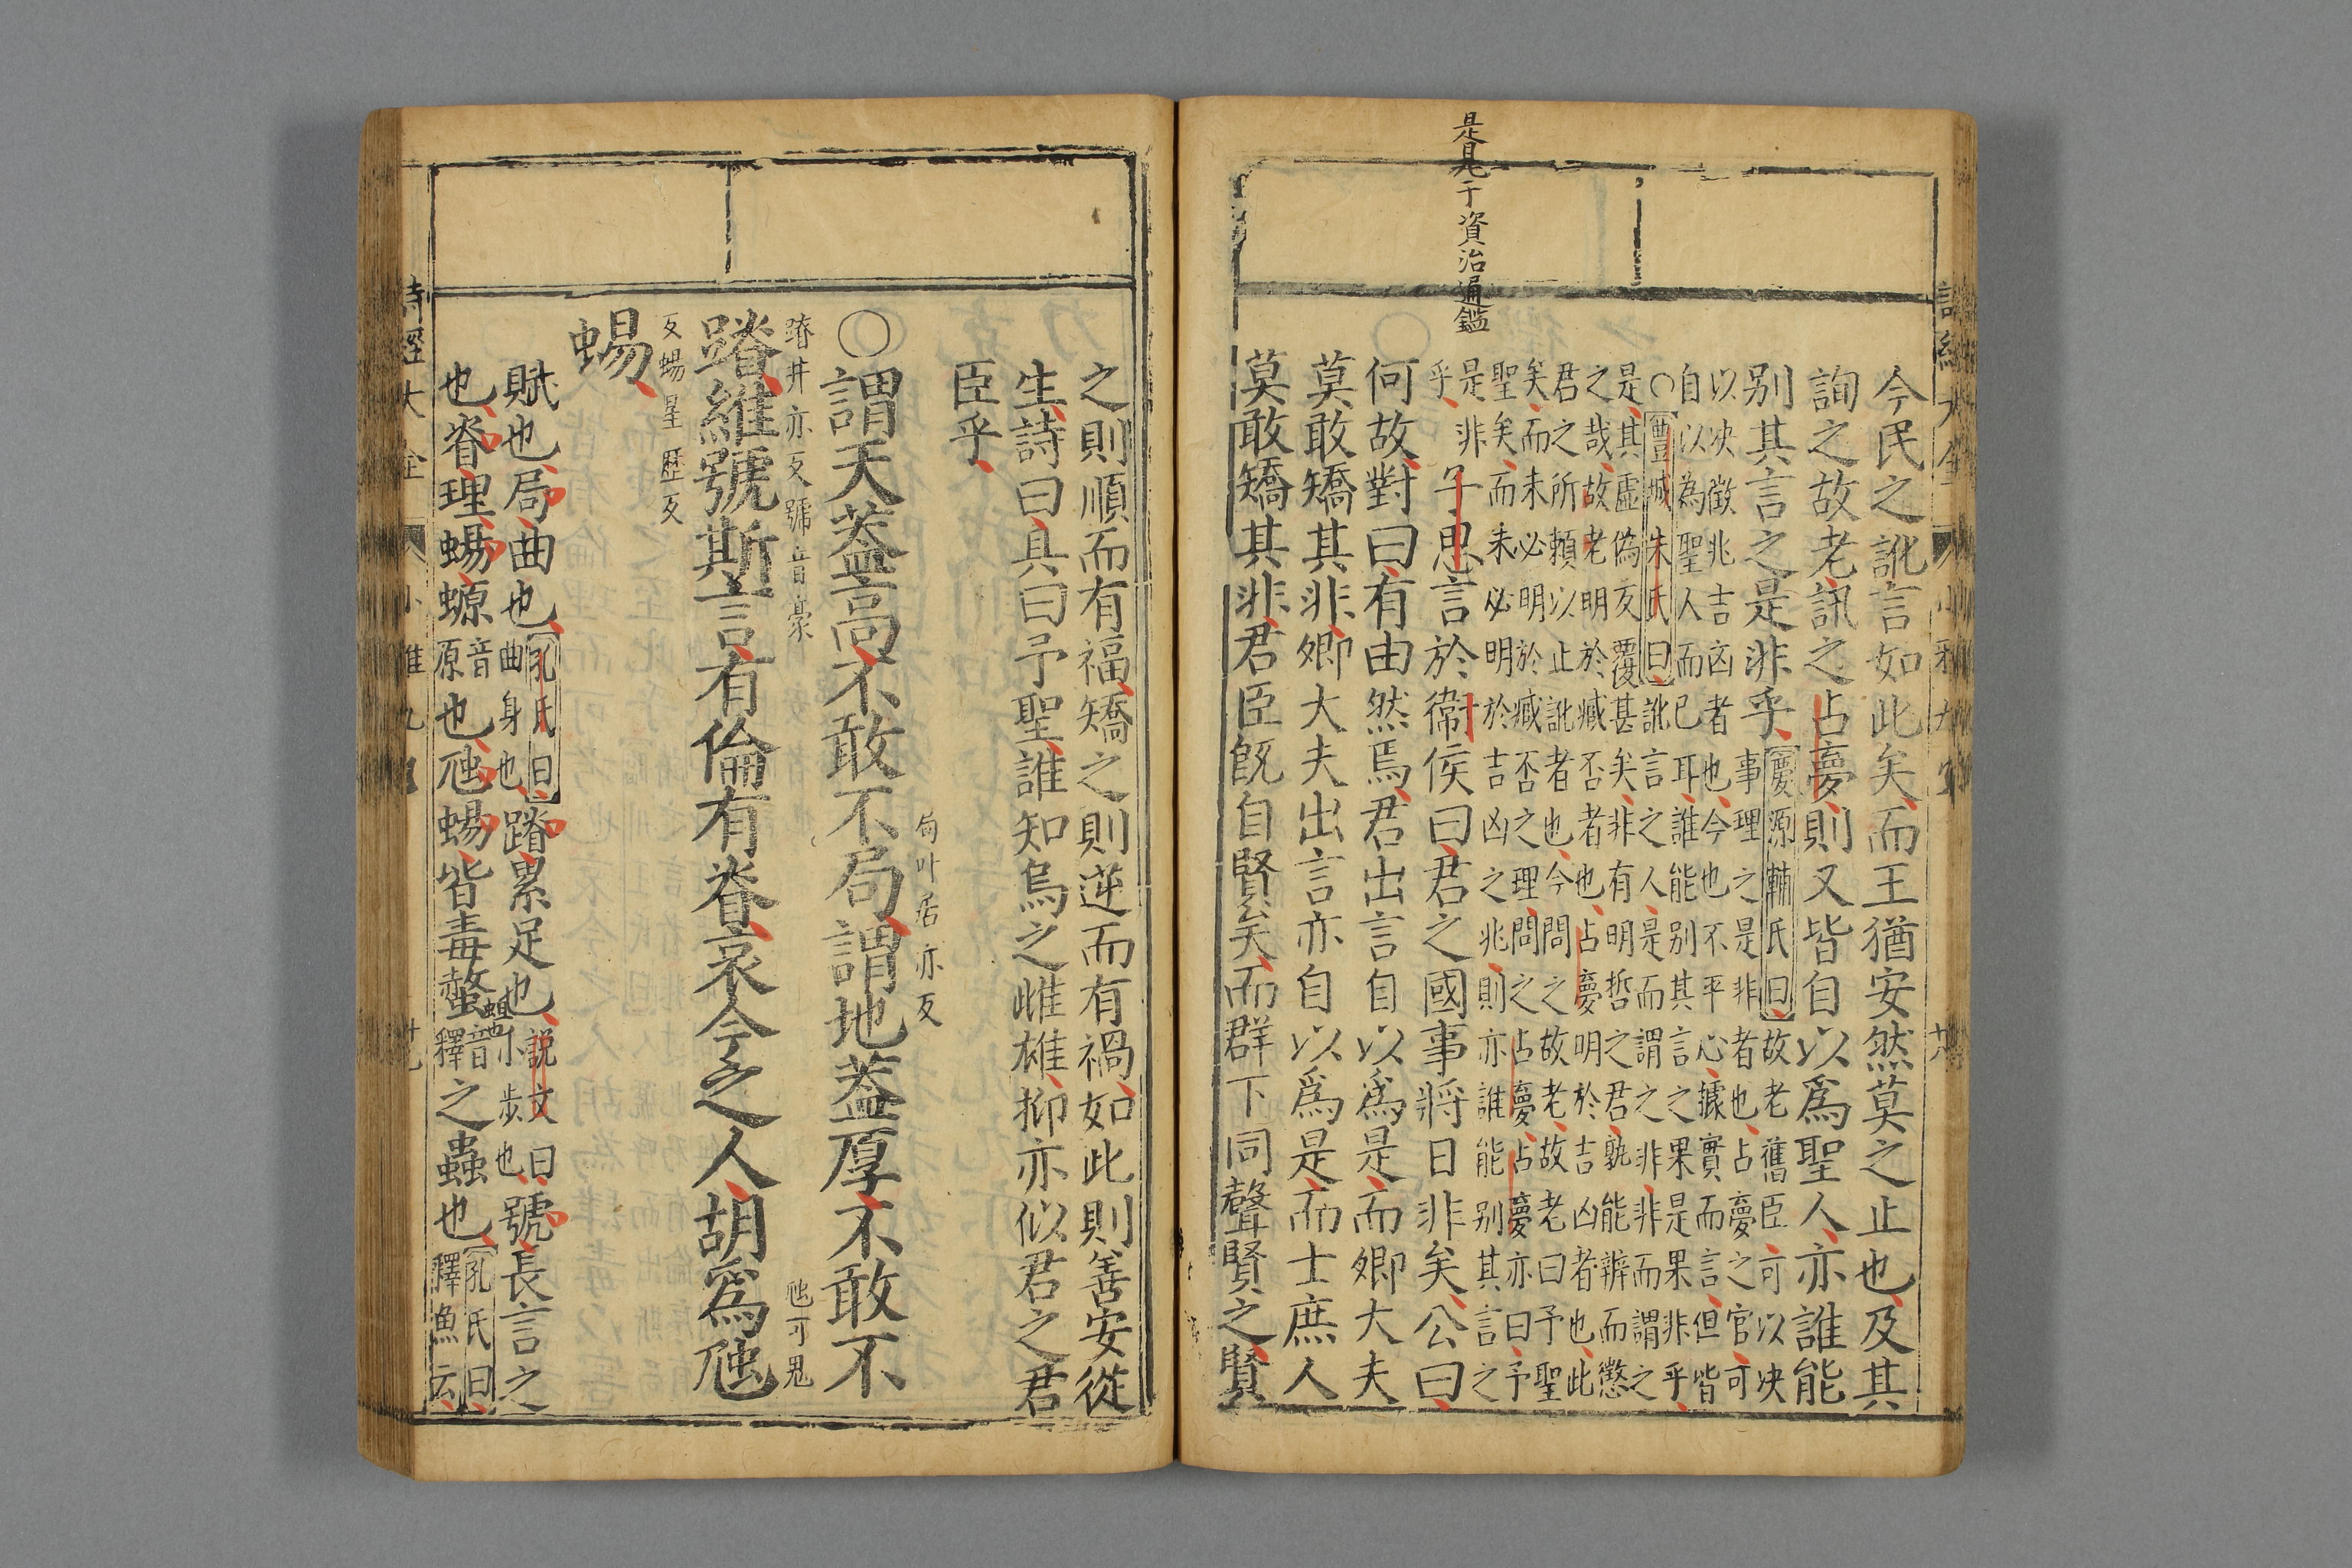 是見于資治通鑑
今民之訛言如此矣而王猶安然莫之止也及其
詢之故老訊之占夢則又皆自以爲聖人亦誰能
别其言之是非乎
慶源輔氏曰故老舊臣可以决
事理之是非者也占夢之官可
以决徵兆吉凶者也今也不平心據實而言但皆
自以為聖人而已耳誰能别其言之果是果非乎
○豐城朱氏曰訛言之人是而謂之非非而謂之
是其虛偽反覆甚矣非有明哲之君孰能辨而懲
之哉故老明於臧否者也占夢明於吉凶者也此
君之所賴以止訛者也今問之故老故老曰予聖
矣而未必明於臧否之理問之占夢占夢亦曰予
聖矣而未必明於吉凶之兆則亦誰能别其言之
是非
乎
子思言於衛侯曰君之國事將日非矣公曰
何故對曰有由然焉君出言自以爲是而卿大夫
莫敢矯其非卿大夫出言亦自以爲是而士庶人
莫敢矯其非君臣旣自賢矣而群下同聲賢之賢
之則順而有福矯之則逆而有禍如此則善安從
生詩曰具曰予聖誰知烏之雌雄抑亦似君之君
臣乎
局叶居亦反
○謂天蓋高不敢不局謂地蓋厚不敢不
蹐井亦反號音豪
虺可鬼
蹐維號斯言有倫有脊哀今之人胡爲虺
反蜴星歷反
蜴
賦也局曲也
孔氏曰
曲身也
蹐累足也
説文曰
小步也
號長言之
也脊理蜴螈
音
原
也虺蜴皆毒螫
音
釋
之蟲也
孔氏曰
釋魚云
詩經大全
小雅九
廿九